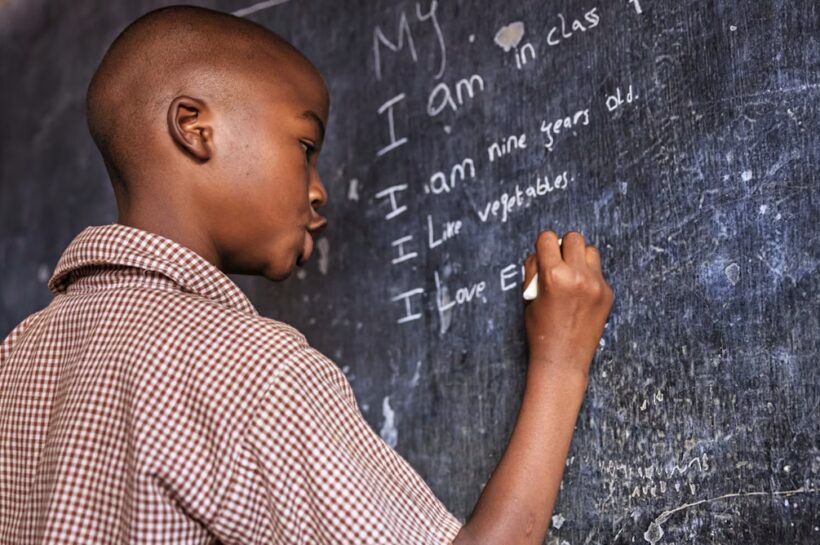 My
I am in class
I am nine years old.
I Like vegetables.
I Love E